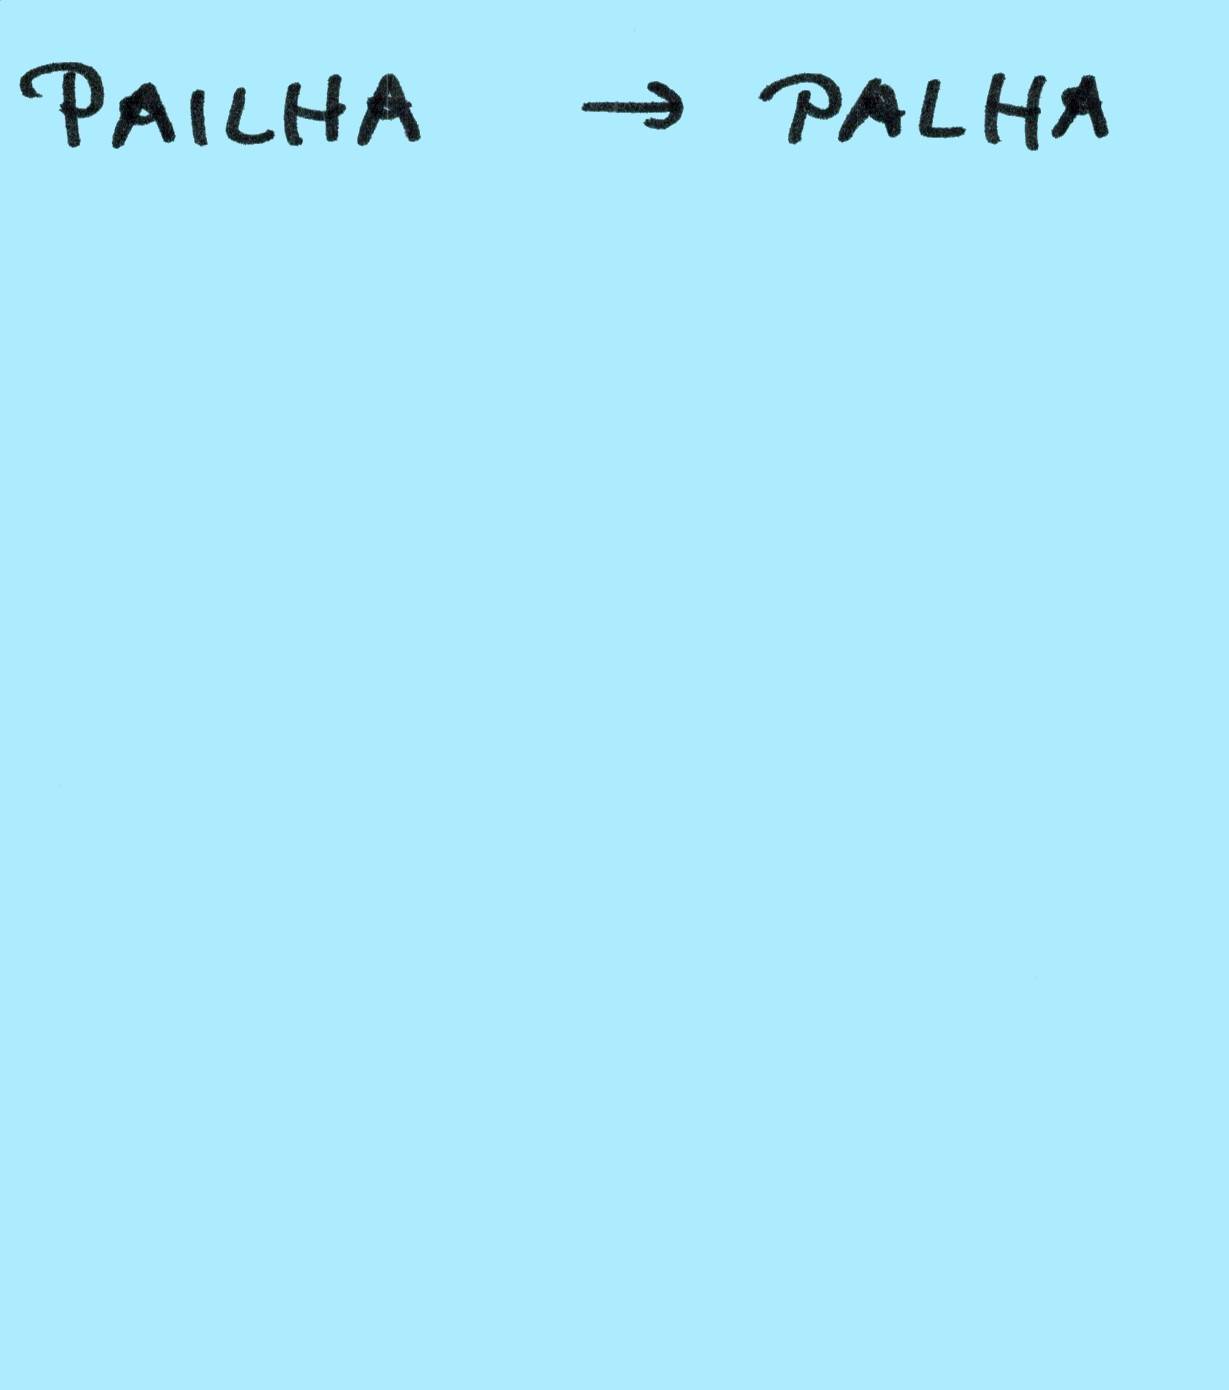 PAILHA → PALHA